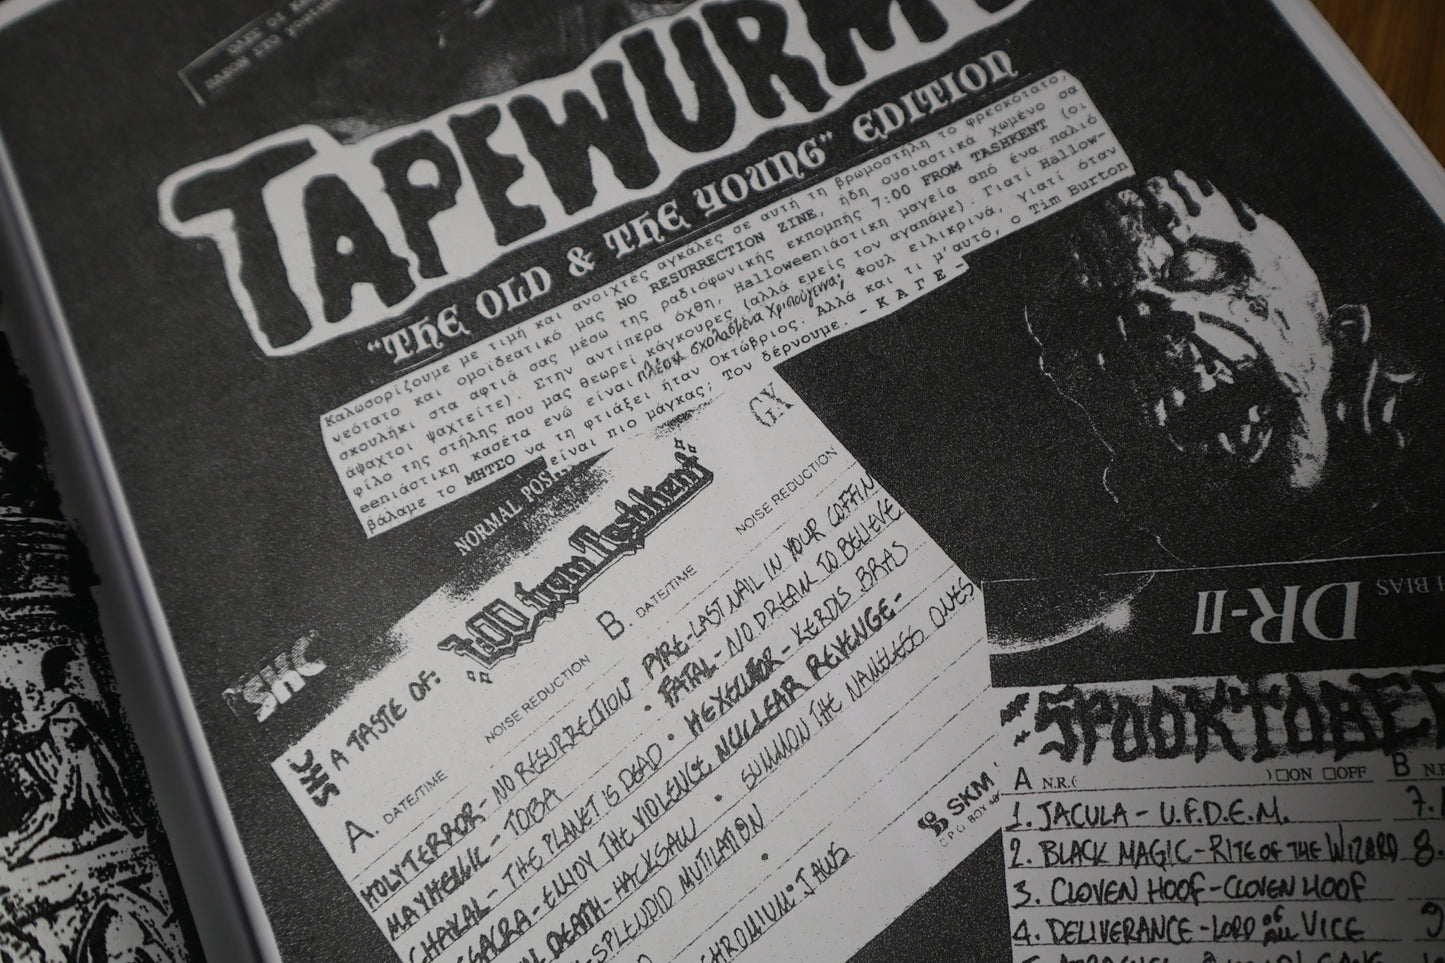 ΟΛΕΣ ΟΙ
TAPEWURM
"THE OLD & THE YOUNG" EDITION
Καλωσορίζουμε με τιμή και ανοιχτές αγκάλες σε αυτή τη βρωμοστήλη το φρεσκότατο,
νεότατο και ομοιδεατικό μας NO RESURRECTION ZINE, ήδη ουσιαστικά χωμένο σα
σκουλήκι στα αφτιά σας μέσω της ραδιοφωνικής εκπομπής 7:00 FROM TASHKENT (οι
άψαχτοι ψαχτείτε). Στην αντίπερα όχθη, Halloweenιάστική μαγεία από ένα παλιό
φίλο της στήλης που μας θεωρεί κάγκουρες (αλλά εμείς τον αγαπάμε). Γιατί Hallow-
eenιάστικη κασέτα ενώ είναι πλέον σχολασμένα Χριστούγεννα; Φουλ ειλικρινά, γιατί όταν
βάλαμε το ΜΗΤΣΟ να τη φτιάξει ήταν Οκτώβριος. Αλλά και τι μ'αυτό, ο Tim Burton
είναι πιο μάγκας; Τον δέρνουμε. - Κ Α Γ Ε -
NORMAL POSI
GX
SKC
SKC A TASTE OF: 7:00 from Tashkent
NOISE REDUCTION
A. DATE/TIME
NOISE REDUCTION
B. DATE/TIME
HOLY TERROR - NO RESURRECTION • PYRE - LAST NAIL IN YOUR COFFIN
MAYHEMIC - TOBA • FATAL - NO DREAM TO BELIEVE
CHAKAL - THE PLANET IS DEAD • HEXECUTOR - KERDIS BRAS
SACRA - ENJOY THE VIOLENCE • NUCLEAR REVENGE -
DEATH - HACKSAW • SUMMON THE NAMELESS ONES
SPLENDID MUTILATION
CHROMIUM JAWS
SKM
P.O BOX
DR-II
BIAS
SPOOKTOBER
A N.R.( ) □ON □OFF B N.R
1. JACULA - U.F.D.E.M.
7.
2. BLACK MAGIC - RITE OF THE WIZARD
8.
3. CLOVEN HOOF - CLOVEN HOOF
4. DELIVERANCE - LORD OF ALL VICE
9